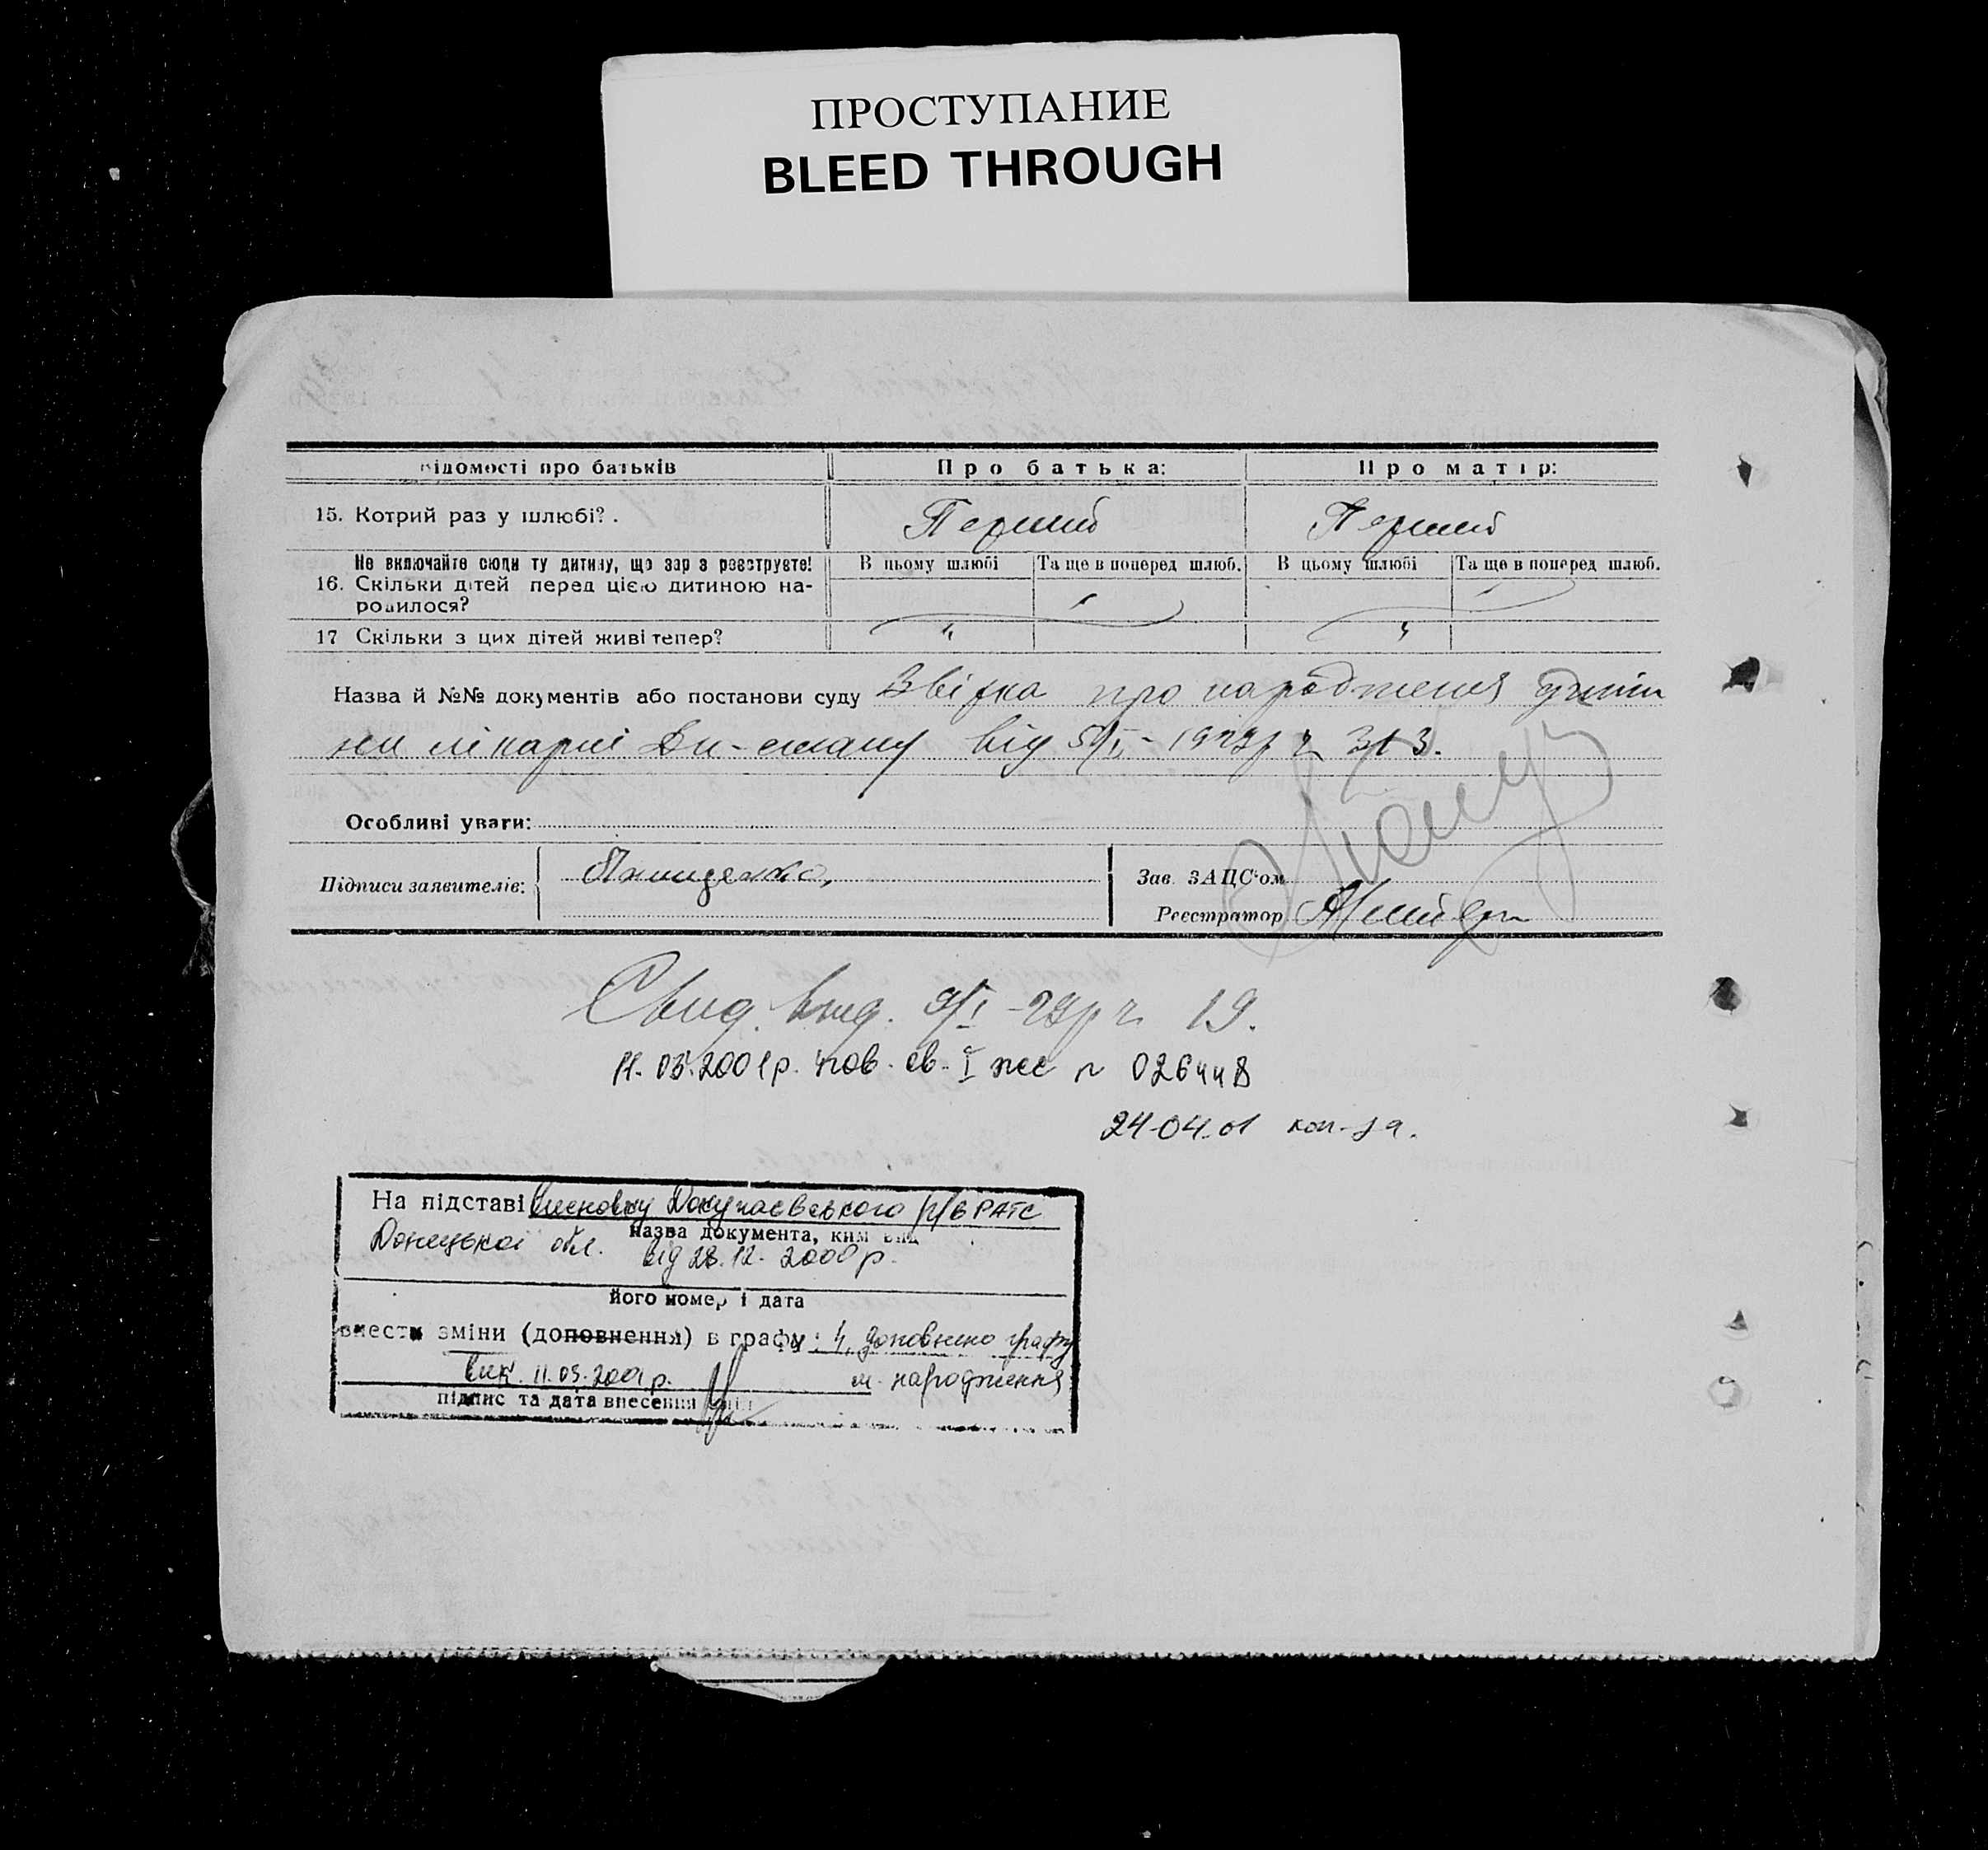 ПРОСТУПАНИЕ
BLEED THROUGH
ідомості про батьків
Про батька:
Про матір:
15. Котрий раз у шлюбі?.
Перший
Перший
Не включайте сюди ту дитину, що зараз реєструєте!
В цьому шлюбі
Та ще в поперед шлюб.
В цьому шлюбі
Та ще в поперед шлюб.
16. Скільки дітей перед цією дитиною на-
родилося?
17 Скільки з цих дітей живі тепер?
Назва й №№ документів або постанови суду Звідка про народження дити
ни лікарні від 5/I - 1929р ч 313.
Особливі уваги:
Підписи заявителів:
Зав ЗАЦС'ом
Реєстратор
Свид. выд. 9/I - 29р ч 19.
11.03.2001р. пов. св. I № 026448
24-04.01
На підставі Висновку Докучаєвського РАГС
назва документа, ким вид
Донецької обл. від 28.12.2000р.
його номер і дата
внести зміни (доповнення) в графу: 4, доповнено графу
вик. 11.03.2001р. м. народження
підпис та дата внесення змін